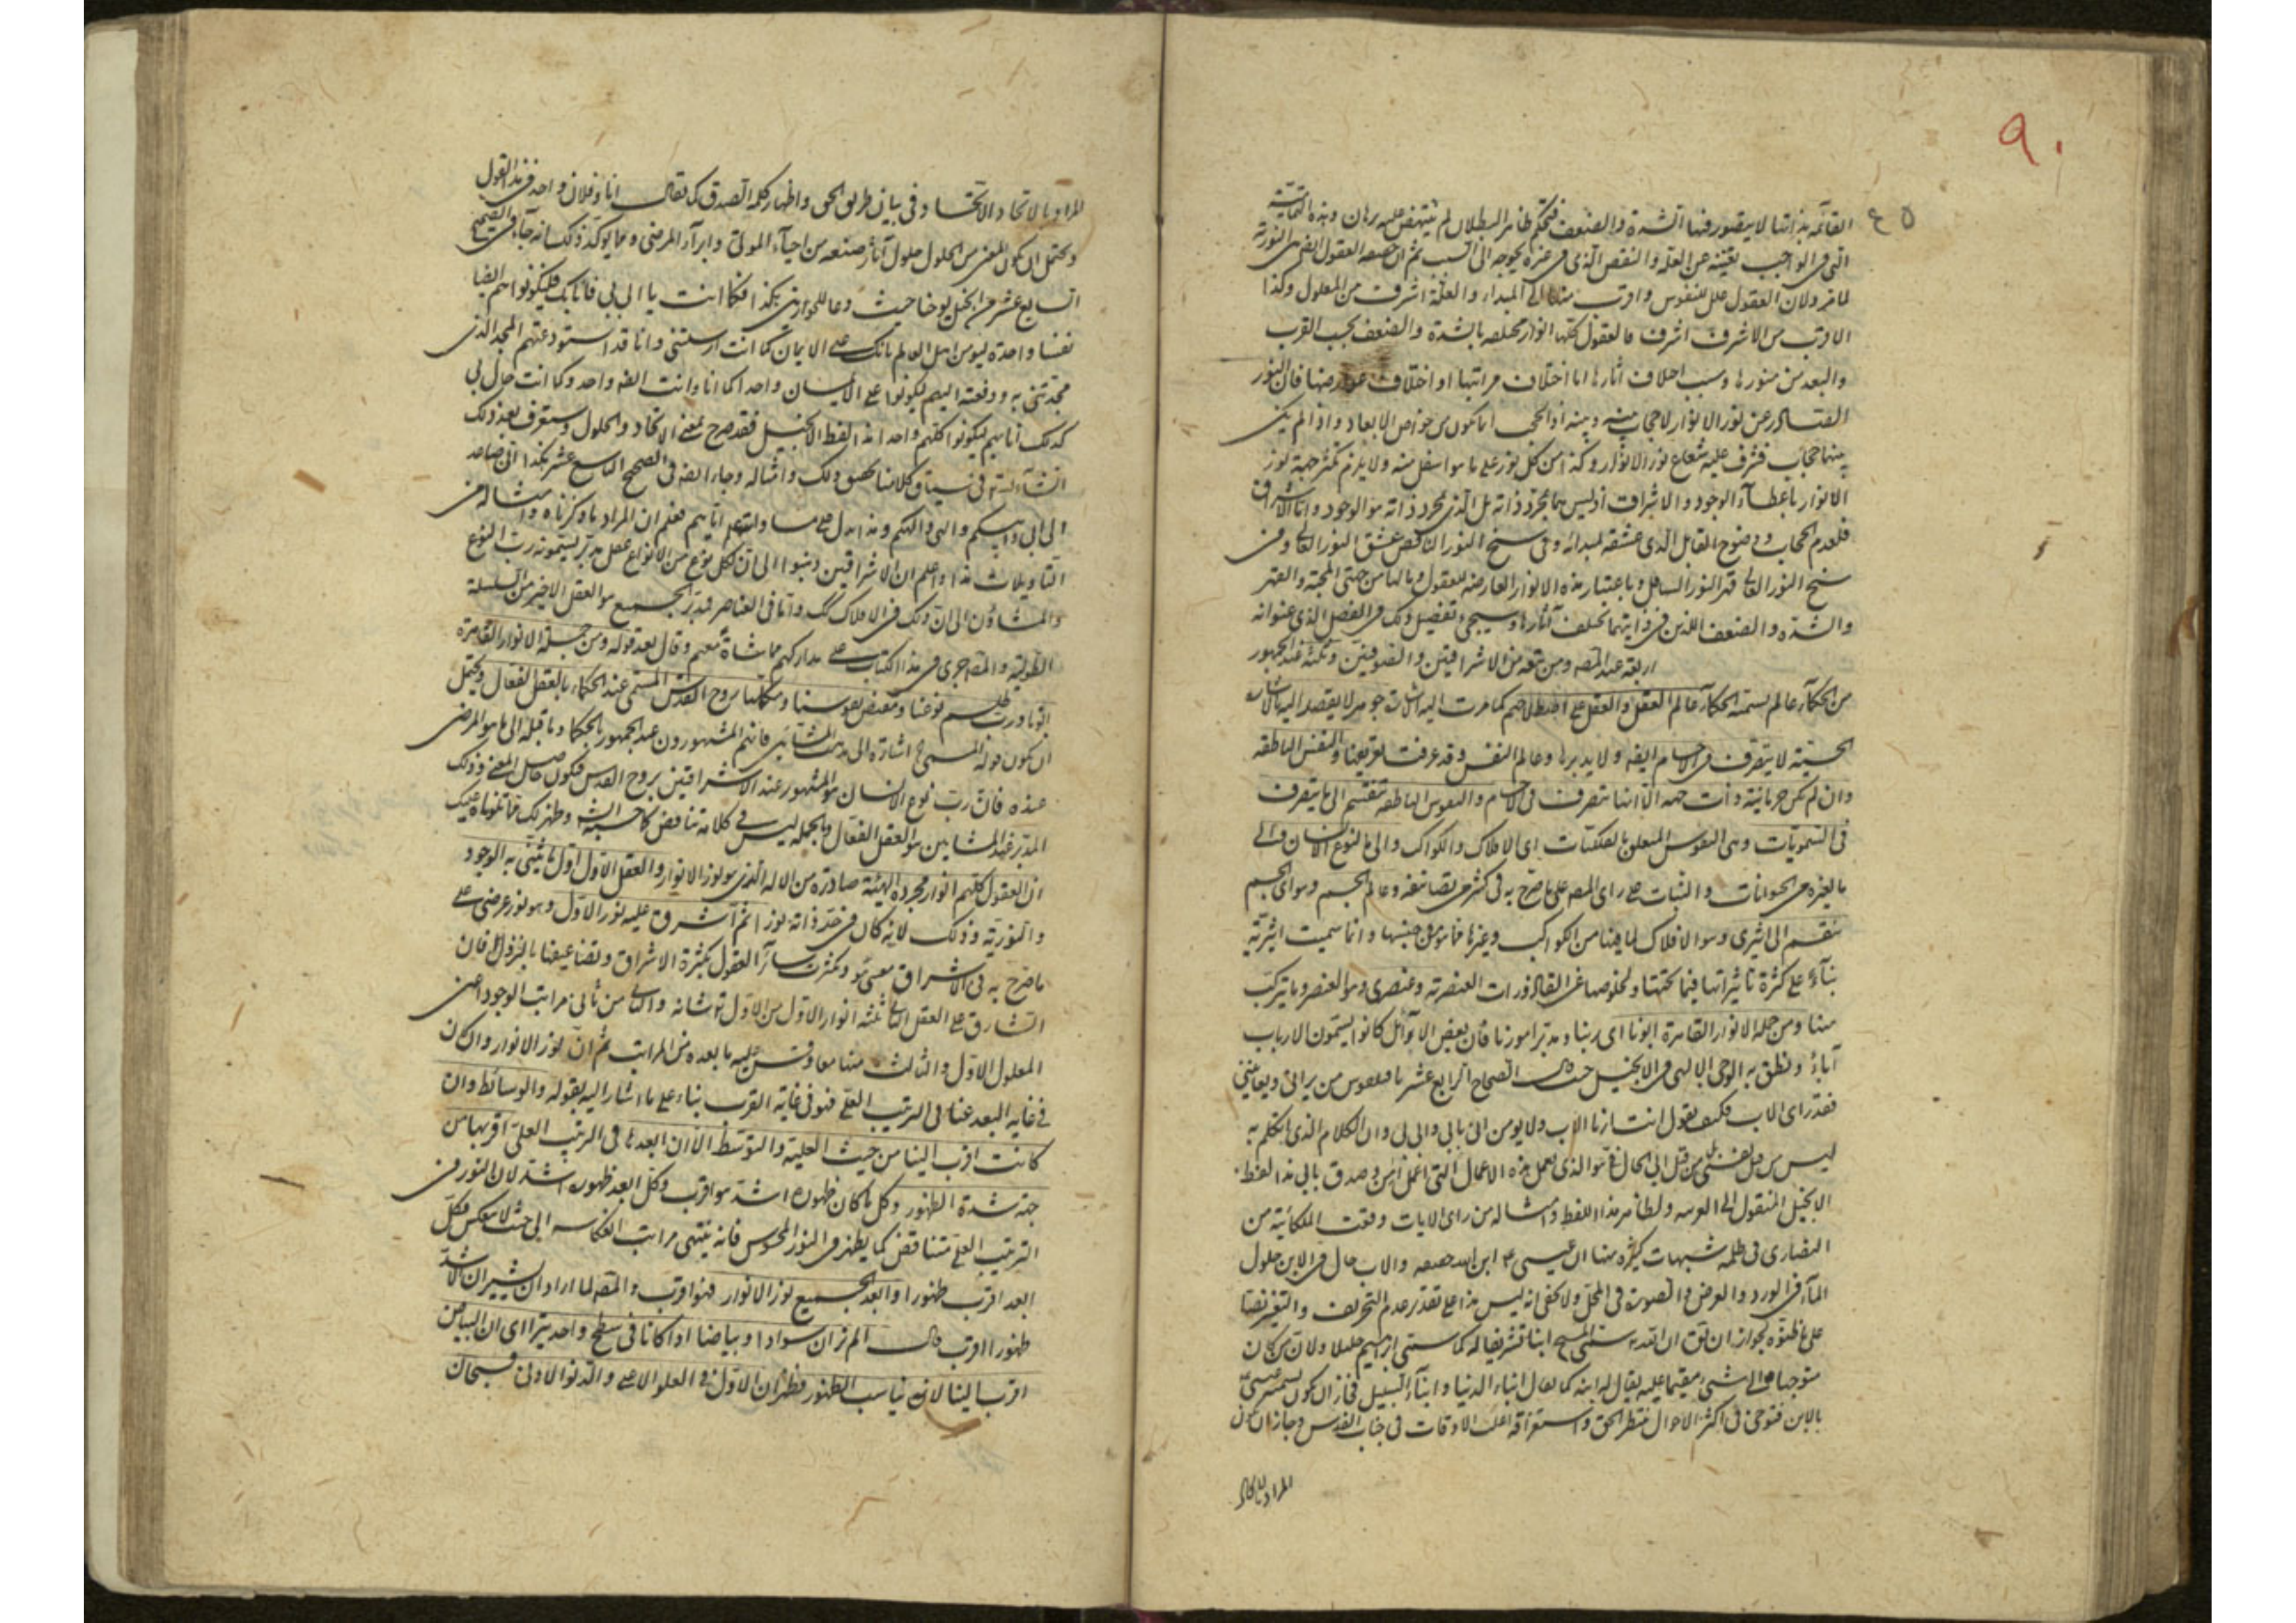 ٩٠
٤٥
القائمة بذاتها لا يتصور فيها الشدة والضعف فتحكم ظاهر البطلان لم ينتهض عليه برهان وهذه التمامية
التي في الواجب يغنيه عن العلة والنقص الذي في غيره يحوجه الى السبب ثم ان العقول النورية
لما مر ولان العقول علل للنفوس واقرب منها الى المبداء والعلة اشرف من المعلول وكذا
الاقرب من الاشرف اشرف فالعقول كلها انوار مختلفة بالشدة والضعف بحسب القرب
والبعد من نورها وسبب اختلاف اثارها اما اختلاف مراتبها او اختلاف عوارضها فان النور
الصادر عن نور الانوار لا حجاب بينه وبينه اذ الحجب انما يكون من خواص الابعاد واذا لم يكن
بينهما حجاب فشرق عليه شعاع نور الانوار وكذا من كل نور على ما هو اسفل منه ولا يلزم تكثر جهة نور
الانوار باعطاء الوجود والاشراق اذ ليس بمجرد ذاته بل الذي بمجرد ذاته هو الوجود واما الاشراق
فلعدم الحجاب ووضوح القابل الذي عشقه لمبدائه وفي سنخ النور الناقص عشق النور العالي وفي
سنخ النور العالي قهر النور السافل وباعتبار هذه الانوار العارضة للعقول وبالها من جهتي المحبة والقهر
والشدة والضعف اللذين في ذاتيهما تختلف اثارها وسيجيء تفصيل ذلك في الفصل الذي عنوانه
اربعة عند المصـ ومن تبعه من الاشراقيين والصوفيين وثلثة عند الجمهور
من الحكماء عالم يسمته الحكماء عالم العقل والعقل على اصطلاحهم كما مرت اليه اشارت جوهر لا يقصد اليه بالاشارت
الحسية لا يتصرف في الاجسام ايضه ولا يدبرها وعالم النفس وقد عرفت تعريفها والنفس الناطقة
وان لم تكن جرمانية وذات جهة الا انها تتصرف في الاجسام والنفوس الناطقة تنقسم الى ما يتصرف
في السمويات وهي النفوس المتعلق بالفلكيات اي الافلاك والكواكب والى ما لنوع الانسان والى
ما لغيره من الحيوانات والنبات على راى المصـ على ما صرح به في كثير من تصانيفه وعالم الجسم وهو اي الجسم
ينقسم الى اثيري وهو الافلاك لما فيها من الكواكب وغيرها مما هو من جنسها وانما سميت اثيرية
بناءً على كثرة تاثيراتها فيما تحتها ولخلوصها عن القاذورات العنصرية وعنصري وهو العنصر وما يتركب
منها ومن جملة الانوار القاهرة ابونا اي ربنا ومدبر امورنا فان بعض الاوائل كانوا يسمون الارباب
آباءً ونطق به الوحي الالهي في الانجيل حيث قال الصحاح الرابع عشر يا من يراني ويعاينني
فقد راى الاب فكيف تقول انت ارنا الاب ولا تؤمن اني بابي وابي بي وان الكلام الذي اتكلم به
ليس من قبل نفسي بل من قبل ابي الحال في هو الذي يعمل هذه الاعمال التي اعمل امن وصدق بابي هذا لفظ
الانجيل المنقول الى العربية ولظاهر هذا اللفظ وامثاله من راى الايات وقعت الملكائية من
النصارى في ظلمة شبهات كثيرة منها ان عيسى ع ابن الله حقيقة والاب حال في الابن حلول
الماء في الورد والعرض والصورة في المحل ولا يخفى انه ليس هذا على تقدير عدم التحريف والتغير نصا
على ما ظنوه لجواز ان يقـ ان الله تعـ سمى المسيح ابنا تشريفا له كما سمى ابرهيم خليلا ولان من كان
متوجها الى شيء مقيما عليه يقال له ابنه كما يقال ابناء الدنيا وابناء السبيل فجاز ان يكون تسمية عيسى
بالابن لتوجهه في اكثر الاحوال شطر الحق واستغراقه اغلب الاوقات في جناب القدس وجاز ان يكون
المراد بالاتحاد
المراد بالاتحاد الاتحاد في بيان طريق الحق واظهار كلمة الصدق كما يقال انا وفلان واحد في هذا القول
ويحتمل ان يكون المعنى من الحلول حلول آثار صنعه من احياء الموتى وابراء المرضى ومما يؤكد ذلك انه جاء في الصحيح
السابع عشر من انجيل يوحنا حيث دعا للحواريين هكذا فكما انت يا ابي بي فانا بك فليكونوا هم ايضا
نفسا واحدة ليومن اهل العالم بانك على الايمان كما انت ارسلتني وانا قد استودعتهم المجد الذي
مجدتني به ودفعته اليهم ليكونوا على الايمان واحدا كما انا وانت ايضه واحد وكما انت حال بي
كذلك انا بهم ليكونوا كلهم واحدا هذا لفظ الانجيل فقد صرح لمعنى الاتحاد والحلول وستعرف بعد ذلك
انشاءالله في سياق كلامنا تحقيق ذلك وامثاله وجاء ايضه في الصحيح التاسع عشر هكذا اني صاعد
الى ابي وابيكم والهي والهكم وهذا يدل على مساواته اياهم فعلم ان المراد ما ذكرناه وامثاله من
التاويلات هذا واعلم ان الاشراقيين ذهبوا الى ان لكل نوع من الانواع عقل مدبر يسمونه رب النوع
والمشاؤن الى ان ذلك في الافلاك كك واما في العناصر فمدبر الجميع هو العقل الاخير من السلسلة
الطولية والمصـ جرى في هذا الكتاب على مداركهم مماشاة معهم وقال بعد قوله ومن جملة الانوار القاهرة
ابونا ورب طلسم نوعنا ومفيض نفوسنا ومكملها روح القدس المسمى عند الحكماء بالعقل الفعال ويحتمل
ان يكون قوله المسمى اشارة الى مذهب المشائين فانهم المشهورون عند الجمهور بالحكماء وما قبله الى ما هو المرضي
عنده فان رب نوع الانسان هو المشهور عند الاشراقيين بروح القدس فيكون حاصل المعنى وذلك
المدبر عند المشايين هو العقل الفعال وبالجملة ليس في كلامه تناقض كما حسبه الشـ وظهر لك مما تلوناه عليك
ان العقول كلهم انوار مجردة الهيئة صادرة من الاله الذي هو نور الانوار والعقل الاول اول ما ينتشي به الوجود
والنورية وذلك لانه كان في حد ذاته نورا ثم اشرق عليه نور الاول وهو نور عرضي على
ما صرح به في الاشراق معنى هو وتكثرت سائر العقول بكثرة الاشراق وتضاعيفها بالنزول فان
الشارق على العقل الثاني ثلثة انوار الاول من الاول تعـ شانه والثاني من ثاني مراتب الوجود اعني
المعلول الاول والثالث منهما معا وقس عليه ما بعده من المراتب ثم ان نور الانوار وان كان
في غاية البعد عنا في الترتيب العلي فهو في غاية القرب بناء على ما اشار اليه بقوله والوسائط وان
كانت اقرب الينا من حيث العلية والتوسط الا ان ابعدها في الترتيب العلي اقربها من
جهة شدة الظهور وكل ما كان ظهوره اشد هو اقرب وكل ابعد ظهوره اشد لان النور في
الترتيب العلي متناقص كما يظهر في النور المحسوس فانه ينتهي مراتب انعكاسه الى حيث لا ينعكس فكل
ابعد اقرب ظهورا وابعد الجميع نور الانوار فهو اقرب والمصـ لما اراد ان يشير ان الاشد
ظهورا اقرب قال الم تر ان سوادا وبياضا اذا كانا في سطح واحد يترااى ان البياض
اقرب الينا لانه يناسب الظهور فظهر ان الاول في العلو الاعلى والدنو الادنى فسبحان